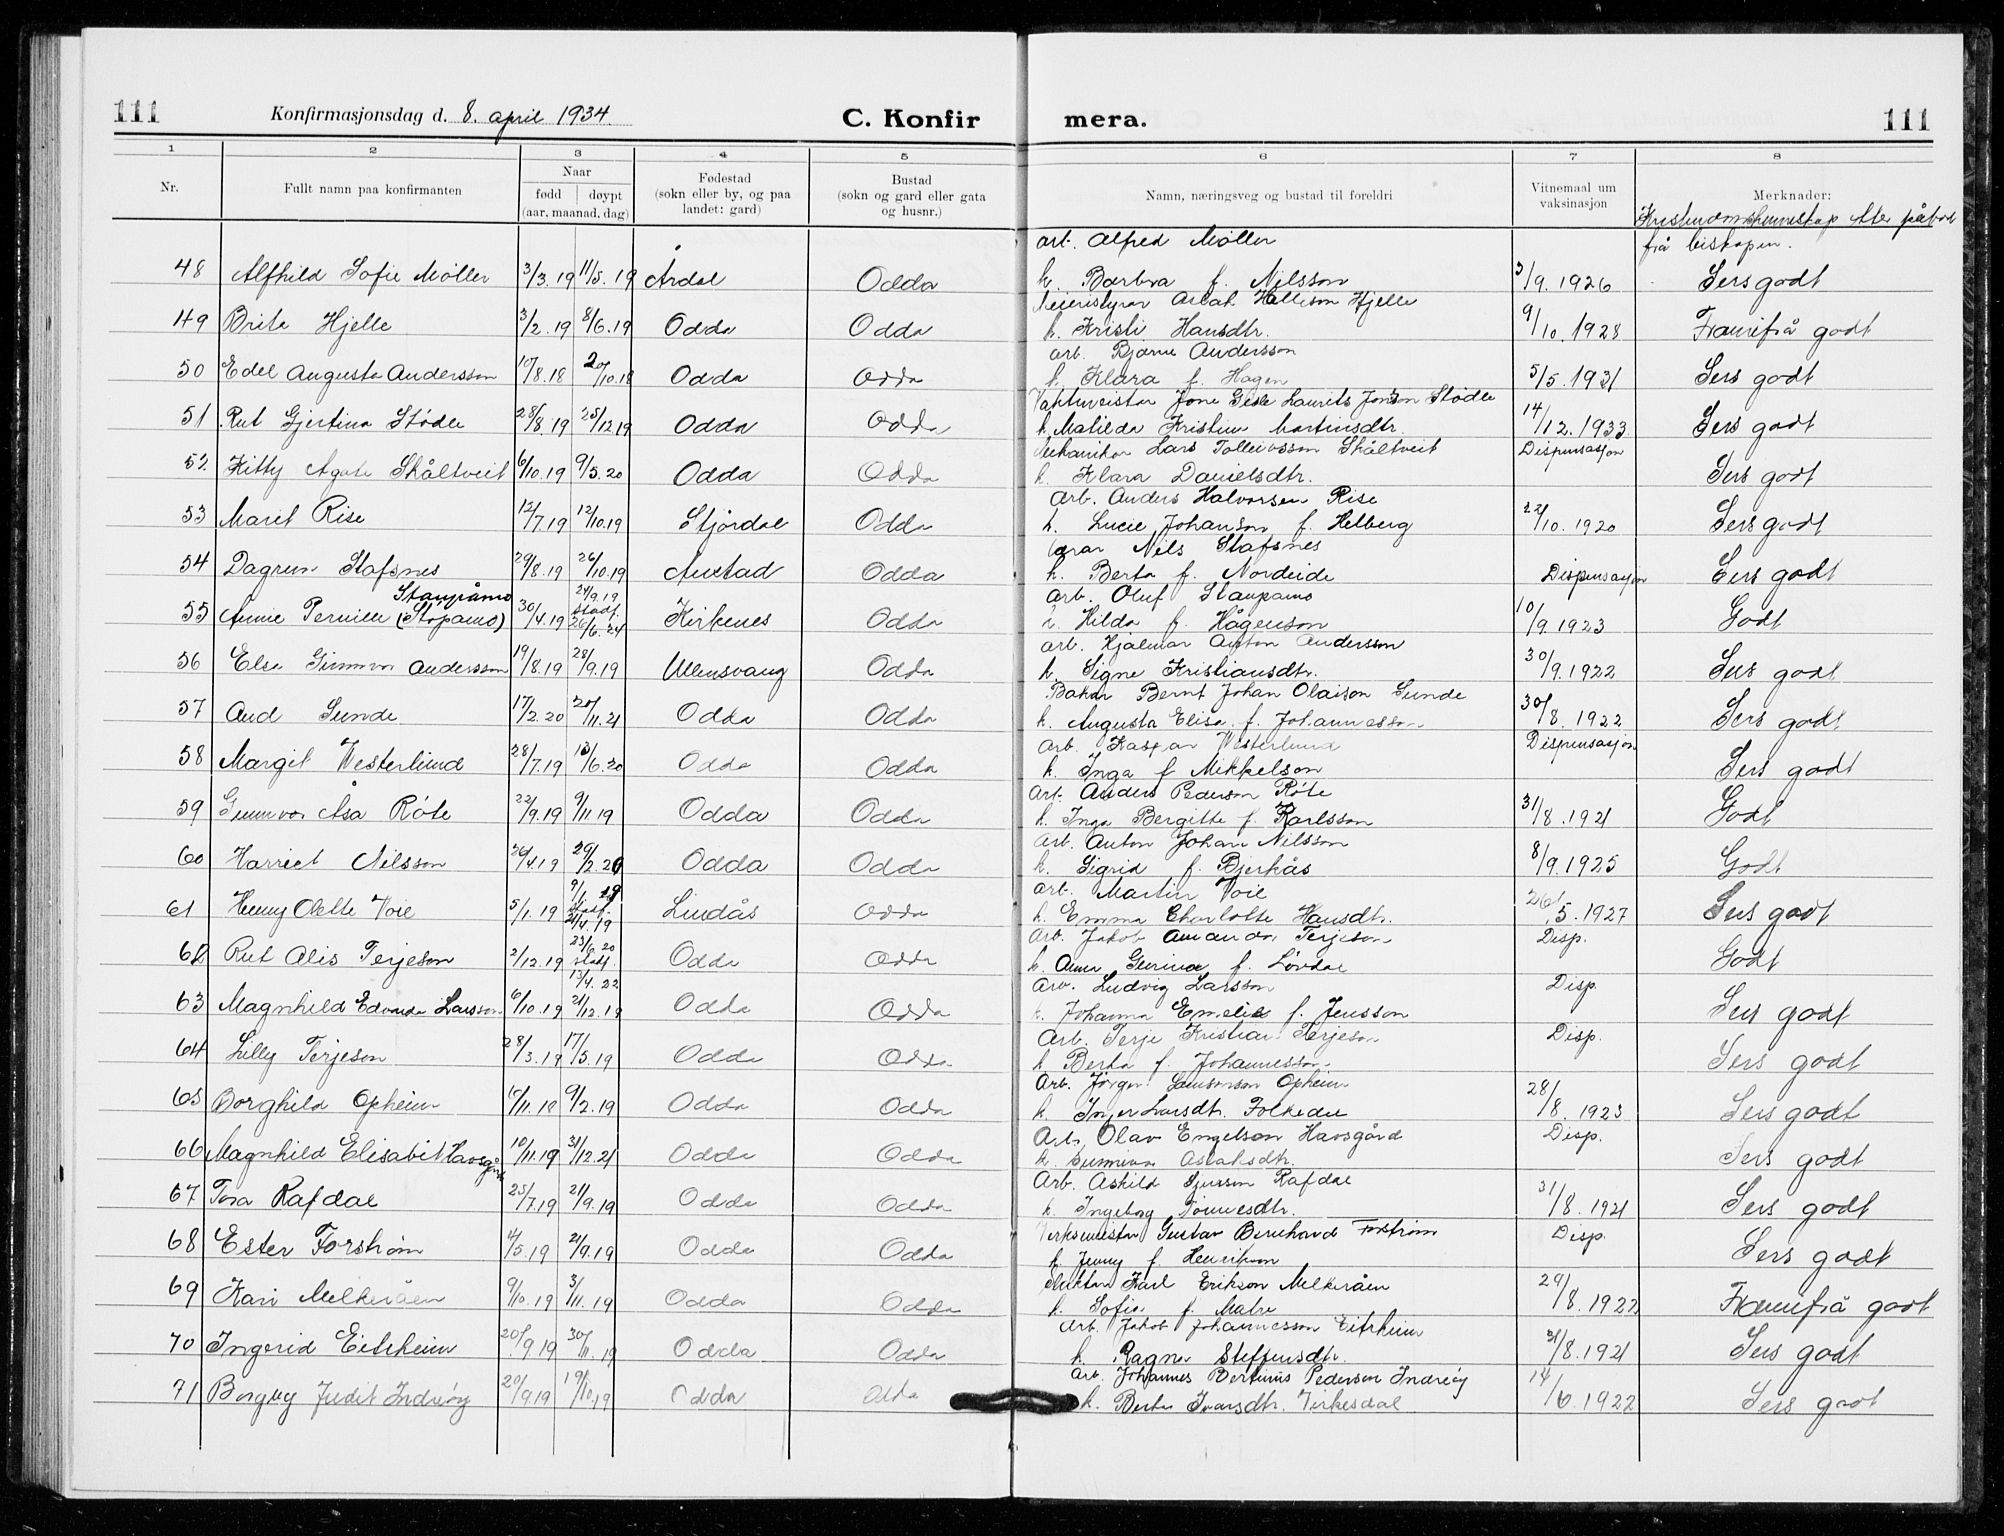 111 Konfirmasjonsdag d. 8. april 1934. C. Konfirmera. 111
1 2 3 4 5 6 7 8
Nr. Fullt namn paa konfirmanten Naar fødd døypt (aar, maanad, dag) Fødestad (sokn eller by, og paa landet: gard) Bustad (sokn og gard eller gata og husnr.) Namn, næringsveg og bustad til foreldri Vitnemaal um vaksinasjon Merknader:
Kristendomskunnskap etter påbod
frå biskopen.
arb. Alfred Møller
48 Alfhild Sofie Møller 3/3.19 11/5.19 Årdal Odda k. Barbra f. Nilsson 3/9.1926 Sers godt
Meieristyrar Aslak Hellison Hjelle
49 Brita Hjelle 3/2.19 8/6.19 Odda Odda k. Kristi Hansdtr. 9/10.1928 Framifrå godt
arb. Bjarne Andersson
50 Edel Augusta Andersson 10/8.18 20/10.18 Odda Odda k. Klara f. Hagen 5/5.1931 Sers godt
Vaktmeister Jone Laurits Stødle
51 Rut Gjertina Stødle 28/8.19 25/12.19 Odda Odda k. Matilda Kristine Martinsdtr. 14/12.1933 Sers godt
Mekanikar Lars Tolleivsson Skåltveit Dispensasjon
52 Kitty Agate Skåltveit 6/10.19 9/5.20 Odda Odda k. Klara Danielsdtr. Sers godt
Arb. Anders Halvorsen Rise
53 Marit Rise 12/7.19 12/10.19 Stjørdal Odda k. Lucie Johanson f. Helberg 22/10.1920 Sers godt
Lærar Nils Stafsnes
54 Dagrun Stafsnes 29/8.19 26/10.19 Odda k. Berta f. Nordeide Dispensasjon Sers godt
Staupåmo 24/9.19 Arb. Oluf Staupamo
stadf.
55 Annie Pernille (Stopamo) 30/4.19 26/6.24 Kirkenes Odda k. Hilda f. Hågenson 10/9.1923 Godt
arb. Hjalmar Anton Andersson
56 Else Gunnvor Andersson 19/8.19 28/9.19 Ullensvang Odda k. Signe Kristiansdtr. 30/9.1922 Sers godt
Bakar Bernt Johan Olaison Sunde
57 Aud Sunde 17/2.20 20/11.21 Odda Odda k. Augusta Elisa f. Johannesson 30/8.1922 Sers godt
arb. Kaspar Westerlund Dispensasjon
58 Margit Westerlund 28/7.19 13/6.20 Odda Odda k. Inga f. Mikkelson Sers godt
Arb. Anders Pederson Røte
59 Gunnvor Åsa Røte 22/9.19 9/11.19 Odda Odda k. Inga Bergitte f. Karlsson 31/8.1921 Godt
Arb. Anton Johan Nilsson
60 Harriet Nilsson 26/4.19 29/2.20 Odda Odda k. Sigrid f. Bjerkås 8/9.1925 Godt
9/1 19 arb. Martin Voie
stadf.
61 Henny Olette Voie 5/1.19 21/4.19 Lindås Odda k. Emma Charlotte Hansdtr. 26/5.1927 Sers godt
23/6.20 Arb. Jakob Amandus Terjeson Disp.
stadf.
62 Rut Alis Terjeson 2/12.19 13/4.22 Odda Odda k. Anna Gurina f. Løvdal Godt
Arb. Ludvig Larsson Disp.
63 Magnhild Edvarda Larsson 6/10.19 21/12.19 Odda Odda k. Johanna Emelie f. Jensson Sers godt
Arb. Terje Kristian Terjeson Disp.
64 Lilly Terjeson 28/3.19 17/5.19 Odda Odda k. Berta f. Johannesson Sers godt
Arb. Jørgen Samsonson Opheim
65 Borghild Opheim 10/11.18 9/2.19 Odda Odda k. Inger Larsdtr. Folkedal 28/8.1923 Sers godt
Arb. Olav Engelson Havsgård Disp.
66 Magnhild Elisabet Havsgård 10/11.19 31/12.21 Odda Odda k. Sunniva Aslaksdtr. Sers godt
Arb. Askild Sjursson Rafdal
67 Tora Rafdal 25/7.19 21/9.19 Odda Odda k. Ingeborg Tønnesdtr. 31/8.1921 Sers godt
Verksmeister Gustav Bernhard Forstrøm Disp.
68 Ester Forstrøm 4/5.19 21/9.19 Odda Odda k. Jenny f. Henrikson Sers godt
Karl Erikson Melkeråen
69 Kari Melkeråen 9/10.19 3/11.19 Odda Odda k. Sofia f. Matre 29/8.1922 Framifrå godt
Arb. Jakob Johannesson Eitrheim
70 Ingerid Eitrheim 20/9.19 30/11.19 Odda Odda k. Ragna Steffensdtr. 31/8.1921 Sers godt
Arb. Johannes Bertinus Pederson Indrøy
71 Borgny Judit Indrøy 20/9.19 19/10.19 Odda Odda k. Berta Ivarsdtr. Virkesdal 14/6.1922 Sers godt